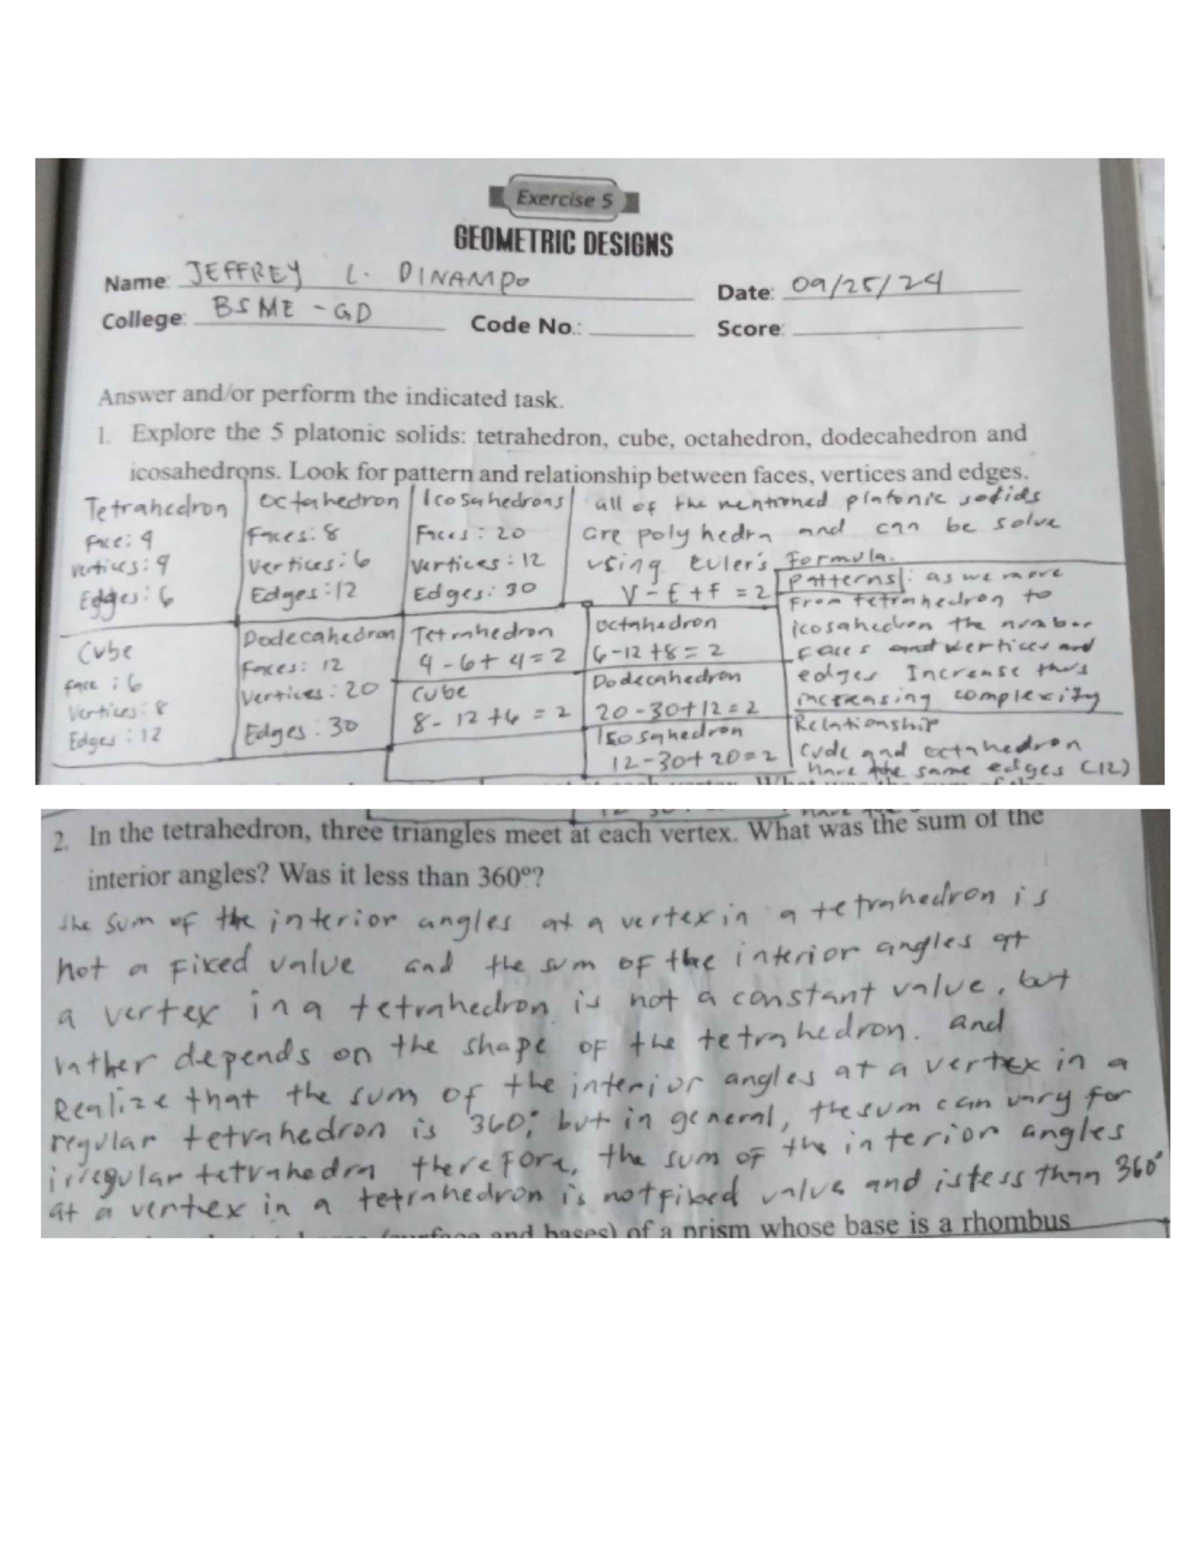 Exercise 5
GEOMETRIC DESIGNS
Name: JEFFREY L. DINAMPO
Date: 09/25/24
College: BSME - GD
Code No.:
Score:
Answer and/or perform the indicated task.
1. Explore the 5 platonic solids: tetrahedron, cube, octahedron, dodecahedron and
icosahedrons. Look for pattern and relationship between faces, vertices and edges.
Tetrahedron
Face: 4
Vertices: 4
Edges: 6
Octahectron
Faces: 8
Vertices: 6
Edges: 12
Icosahedrons
Faces: 20
Vertices: 12
Edges: 30
all of the mentioned platonic solids
are polyhedra and can be solve
using Euler's Formula.
V - E + F = 2
Patterns: as we more
From tetrahedron to
icosahedron the number
Faces and vertices and
edges Increase thus
increasing complexity
Cube
face: 6
Vertices: 8
Edges: 12
Dodecahedron
Faces: 12
Vertices: 20
Edges: 30
Tetrahedron
4 - 6 + 4 = 2
Cube
8 - 12 + 6 = 2
Octahedron
6 - 12 + 8 = 2
Dodecahedron
20 - 30 + 12 = 2
Isosahedron
12 - 30 + 20 = 2
Relationship
Cude and octahedron
have the same edges (12)
2. In the tetrahedron, three triangles meet at each vertex. What was the sum of the
interior angles? Was it less than 360°?
the sum of the interior angles at a vertex in a tetrahedron is
not a fixed value and the sum of the interior angles at
a vertex in a tetrahedron is not a constant value, but
rather depends on the shape of the tetrahedron. and
Realize that the sum of the interior angles at a vertex in a
regular tetrahedron is 360°, but in general, the sum can vary for
irregular tetrahedra therefore, the sum of the interior angles
at a vertex in a tetrahedron is not fixed value and is less than 360°
and bases) of a prism whose base is a rhombus